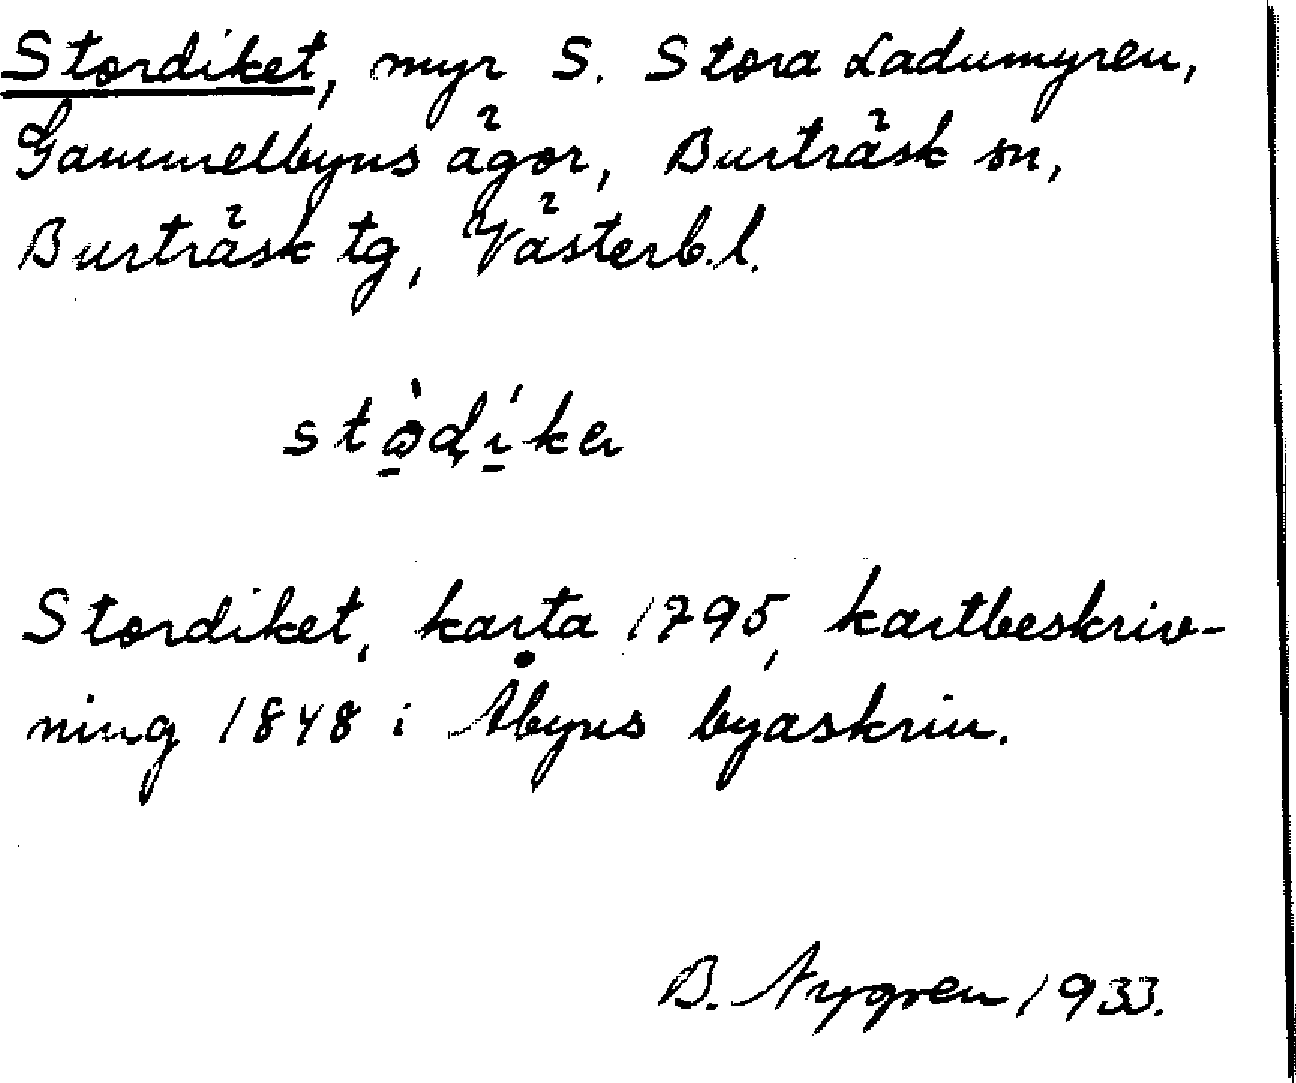 Stordiket, myr S. Stora Ladumyren,
Gammelbyns ägor, Burträsk sn,
Burträsk tg, Västerb.l.
Stordiket, karta 1795, kartbeskriv-
ning 1848 i Åbyns byaskrin.
B. Nygren 1933.